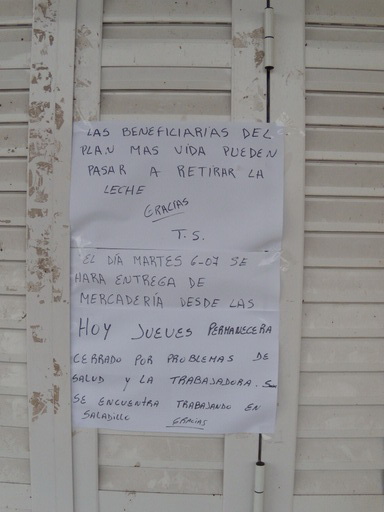 LAS BENEFICIARIAS DEL
PLAN MAS VIDA PUEDEN
PASAR A RETIRAR LA
LECHE
GRACIAS
T.S.
EL DÍA MARTES 6-07 SE
HARA ENTREGA DE
MERCADERÍA DESDE LAS
HOY JUEVES PERMANECERA
CERRADO POR PROBLEMAS DE
SALUD Y LA TRABAJADORA. S
SE ENCUENTRA TRABAJANDO EN
SALADILLO GRACIAS